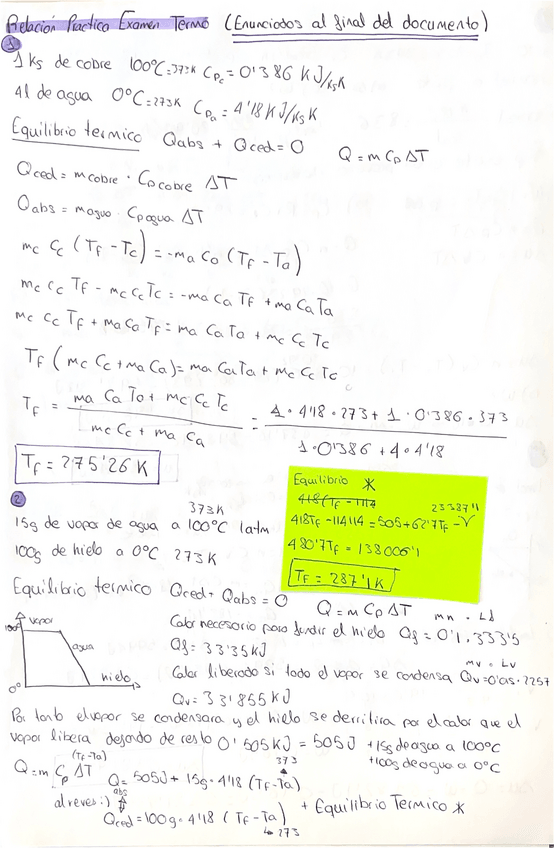 Relación Practica Examen Termo (Enunciados al final del documento)
1
1 kg de cobre 100°C=373K Cpc = 0'386 KJ/KgK
4l de agua 0°C=273K Cpa = 4'18 KJ/KgK
Equilibrio termico Qabs + Qced = 0 Q = m Cp ΔT
Qced = mcobre · Cpcobre ΔT
Qabs = magua · Cpagua ΔT
mc Cc (Tf - Tc) = -ma Ca (Tf - Ta)
mc cc Tf - mc cc Tc = -ma Ca Tf + ma Ca Ta
mc cc Tf + ma Ca Tf = ma Ca Ta + mc Cc Tc
Tf (mc Cc + ma Ca) = ma Ca Ta + mc Cc Tc
Tf = ma Ca Ta + mc Cc Tc / mc Cc + ma Ca = 4·4'18·273 + 1·0'386·373 / 1·0'386 + 4·4'18
Tf = 275'26 K
2
373K
15g de vapor de agua a 100°C 1atm
100g de hielo a 0°C 273K
Equilibrio *
418(Tf - 1114
23387'1
418Tf - 114114 = 505 + 62'7Tf -
480'7Tf = 138006'1
Tf = 287'1K
Equilibrio termico Qced + Qabs = 0 Q = m Cp ΔT
mn · Ld
Calor necesario para fundir el hielo Qf = 0'1·333'5
Qf = 33'35 KJ
mv · Lv
Calor liberado si todo el vapor se condensa Qv = 0'015·2257
Qv = 33'855 KJ
100° vapor
agua
hielo
0°
Por tanto el vapor se condensara y el hielo se derritira por el calor que el
vapor libera dejando de resto 0'505KJ = 505J +15g de agua a 100°C
+100g de agua a 0°C
(Tf-Ta)
Q = m Cp ΔT
373
Qabs = 505J + 15g·4'18 (Tf-Ta)
al reves :)
Qced = 100g·4'18 (Tf-Ta) + Equilibrio Termico *
273